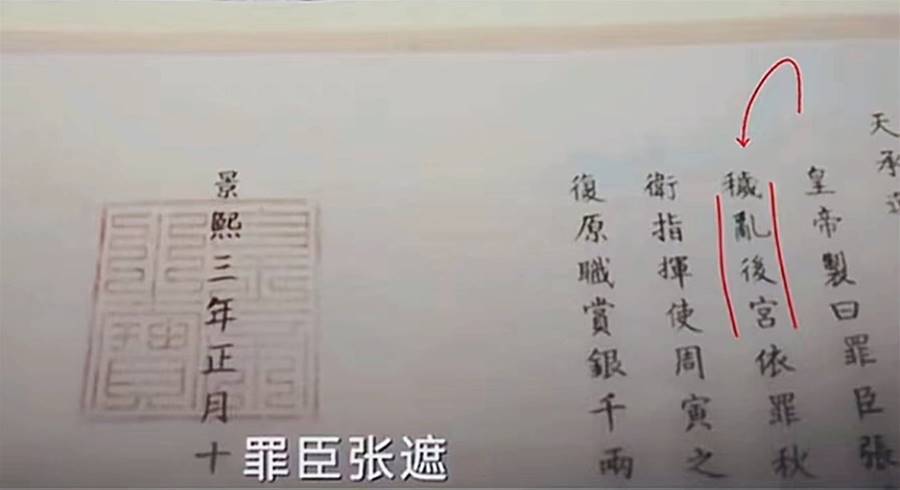 天承
皇帝製曰罪臣張
穢亂後宮依罪秋
衛指揮使周寅之
復原職賞銀千兩
景熙三年正月十
罪臣张遮